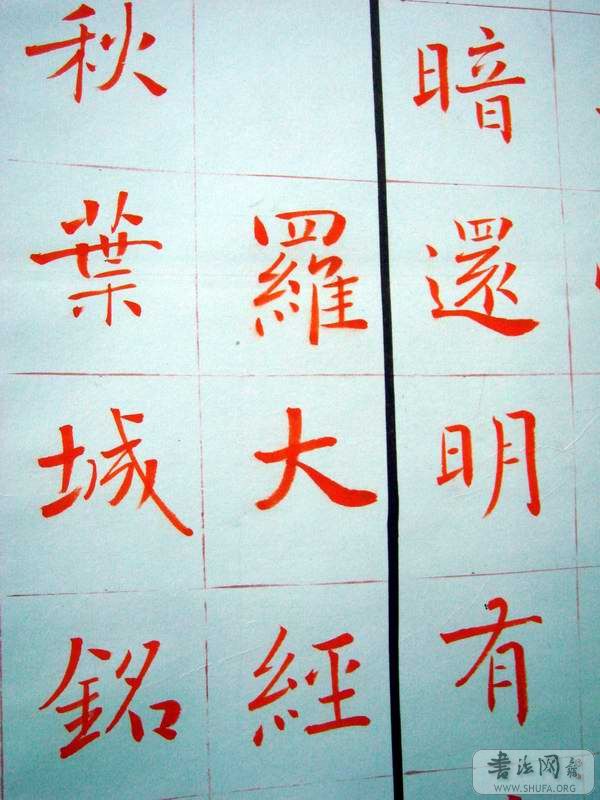 暗還明有
羅大經
秋葉城銘
書法网
WWW.SHUFA.ORG